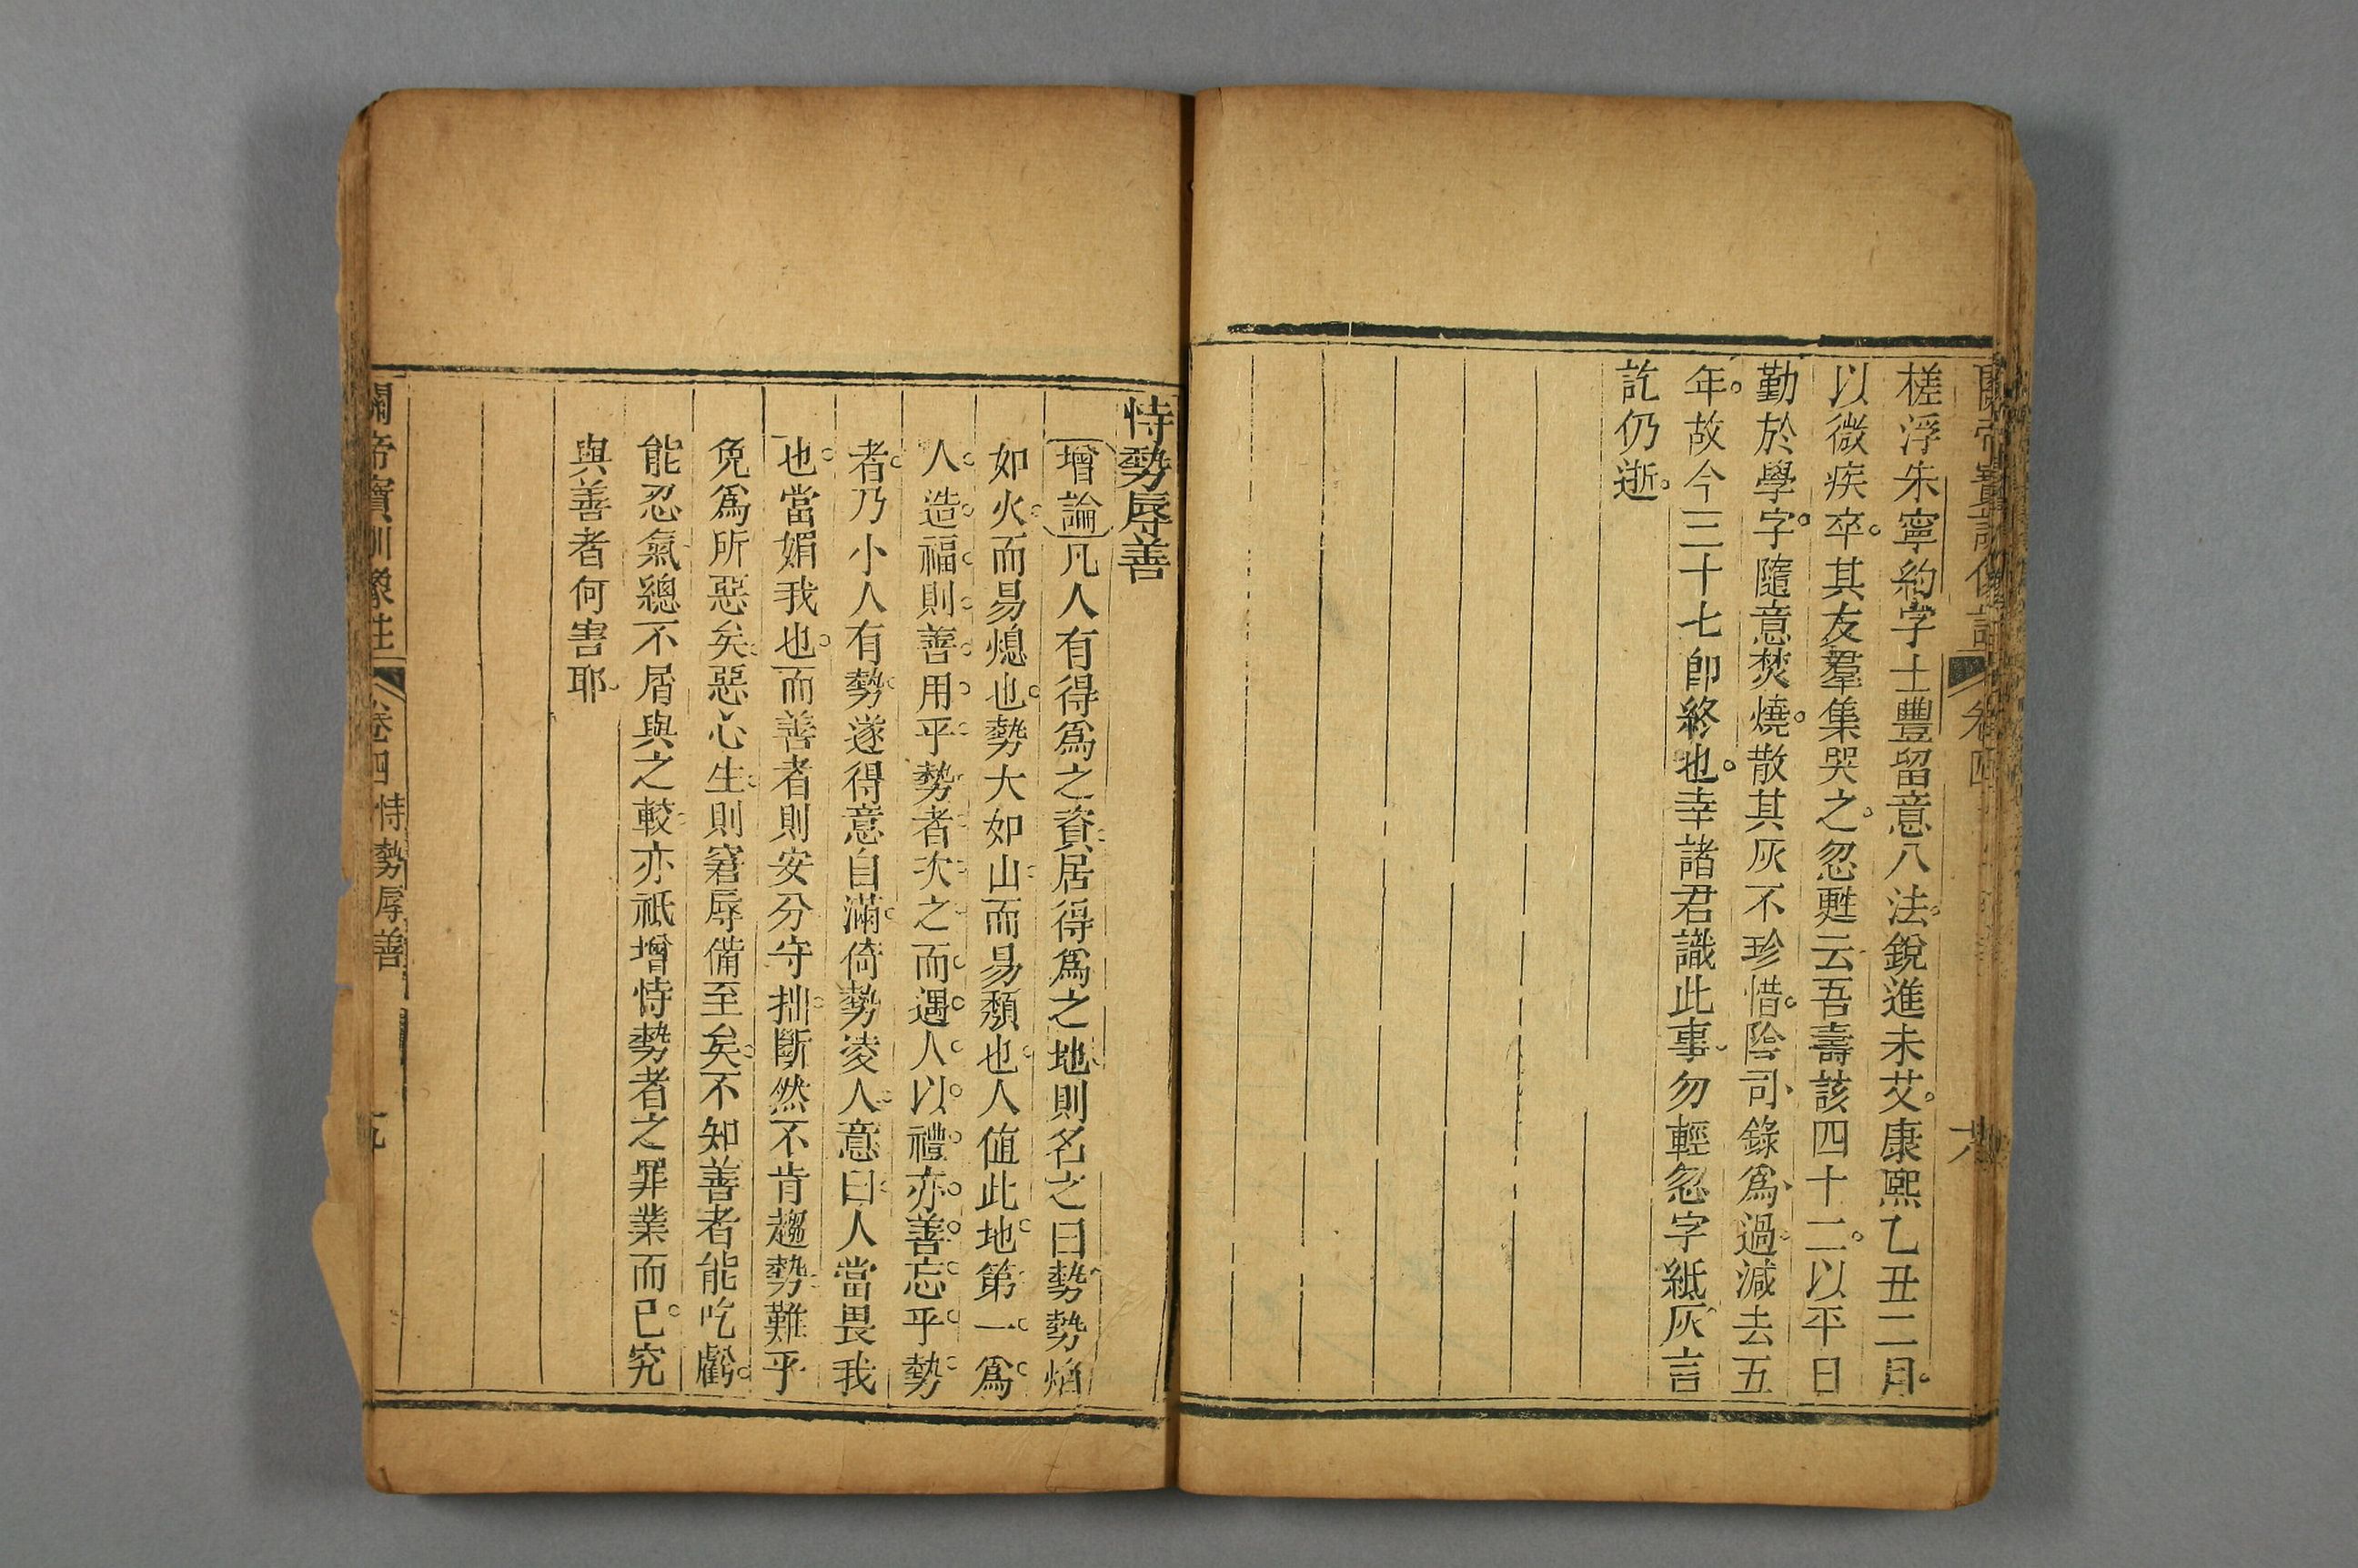 槎浮朱寧約字士豐留意八法。銳進未艾。康熙乙丑二月。
以微疾卒。其友羣集哭之。忽甦云吾壽該四十二。以平日
勤於學字。隨意焚燒。散其灰不珍惜。陰司錄爲過減去五
年。故今三十七卽終也。幸諸君識此事勿輕忽字紙灰言
訖仍逝。
恃勢辱善
增論凡人有得爲之資居得爲之地則名之曰勢勢焰
如火。而易熄也。勢大如山而易頹也人値此地。第一。爲。
人。造。福。則。善。用。乎。勢者次之而。遇。人。以。禮。亦。善。忘。乎。勢。
者。乃小人有勢。遂得意自滿。倚勢凌人。意曰人當畏我
也。當媚我也。而善者則安分守拙。斷然不肯趨勢難乎
免爲所惡矣。惡心生。則窘辱備至矣。不知善者能吃虧。
能忍氣總不屑與之較。亦祗增恃勢者之罪業而已。究
與善者何害耶。
關帝寶訓像註 卷四 恃勢辱善